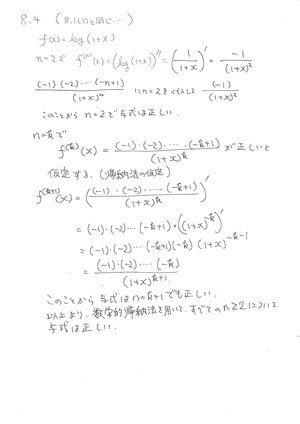 8.4 (8.1(1)と同じ…)
f(x)=log(1+x)
n=2で f⁽ⁿ⁾(x)=(log(1+x))''=(1/(1+x))'=-1/(1+x)²
(-1)·(-2)·…·(-n+1)/(1+x)ⁿ にn=2を代入して (-1)/(1+x)²
このことから n=2で与式は正しい.
n=kで
f⁽ᵏ⁾(x)=(-1)·(-2)·…·(-k+1)/(1+x)ᵏ が正しいと
仮定する. (帰納法の仮定)
f⁽ᵏ⁺¹⁾(x)=((-1)·(-2)·…·(-k+1)/(1+x)ᵏ)'
=(-1)·(-2)…(-k+1)·((1+x)⁻ᵏ)'
=(-1)·(-2)…(-k+1)(-k)(1+x)⁻ᵏ⁻¹
=(-1)·(-2)…(-k)/(1+x)ᵏ⁺¹
このことから 与式は n=k+1でも正しい.
以上より, 数学的帰納法を用いて, すべてのn≥2について
与式は正しい.